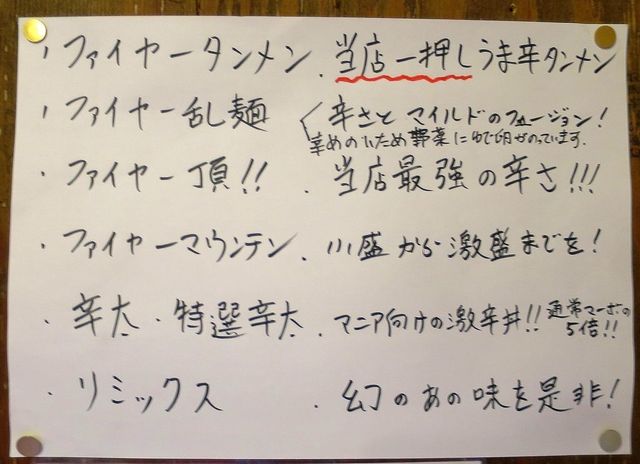 ・ファイヤータンメン ．当店一押しうま辛タンメン
・ファイヤー乱麺 辛さとマイルドのフュージョン！
辛めのいため野菜にゆで卵がのっています．
・ファイヤー頂!! ．当店最強の辛さ!!!
・ファイヤーマウンテン ．小盛から激盛までを！
・辛太・特選辛太 ．マニア向けの激辛丼!! 通常マーボの
5倍!!
・リミックス ．幻のあの味を是非！